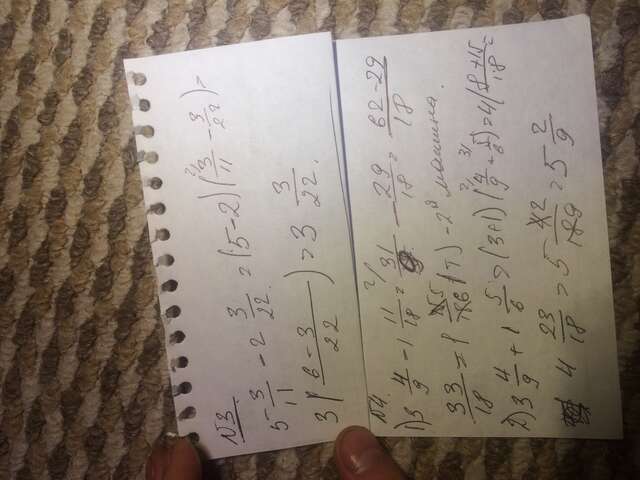 №3.
5 3/11 - 2 3/22 = (5-2) (2/ 3/11 - 3/22) =
3 ( 6-3 / 22 ) = 3 3/22.
№4.
1) 3 4/9 - 1 11/18 = 2/ 31/9 - 29/18 = 62-29/18
33/18 = 1 15/18 6 (т) - 2я машина.
2) 3 4/9 + 1 5/6 = (3+1) (2/ 4/9 + 3/ 5/6) = 4 ( 8+15/18 =
4 23/18 = 5 42/189 = 5 2/9